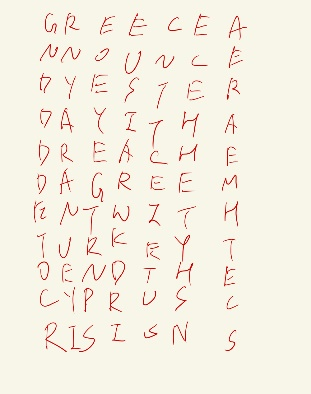 G R E E C E A
N N O U N C E
D Y E S T E R
D A Y I T H A
D R E A C H E
D A G R E E M
E N T W I T H
T U R K E Y T
O E N D T H E
C Y P R U S C
R I S I S N S